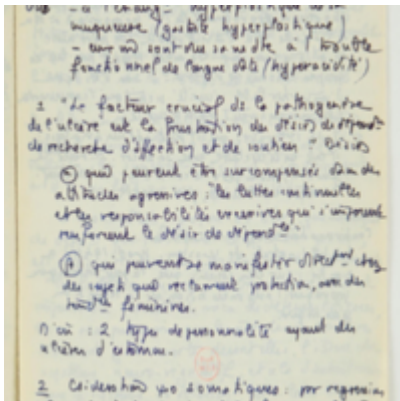 muqueuse (gastrite hyperplastique)
fonctionnel de longue date (hyperacidité)
1 "le facteur crucial de la pathogenèse
de l'ulcère est la frustration des désirs de dépendce
de recherche d'affection et de soutien" Désirs
qui peuvent être surcompensés dans des
attitudes agressives : les luttes continuelles
et les responsabilités excessives qui s'imposent
renforcent le désir de dépendce
qui peuvent se manifester directmt chez
des sujets qui réclament protection, avec des
tendces féminines.
D'où : 2 types de personnalité ayant des
ulcères d'estomac.
2 somatiques : par régression